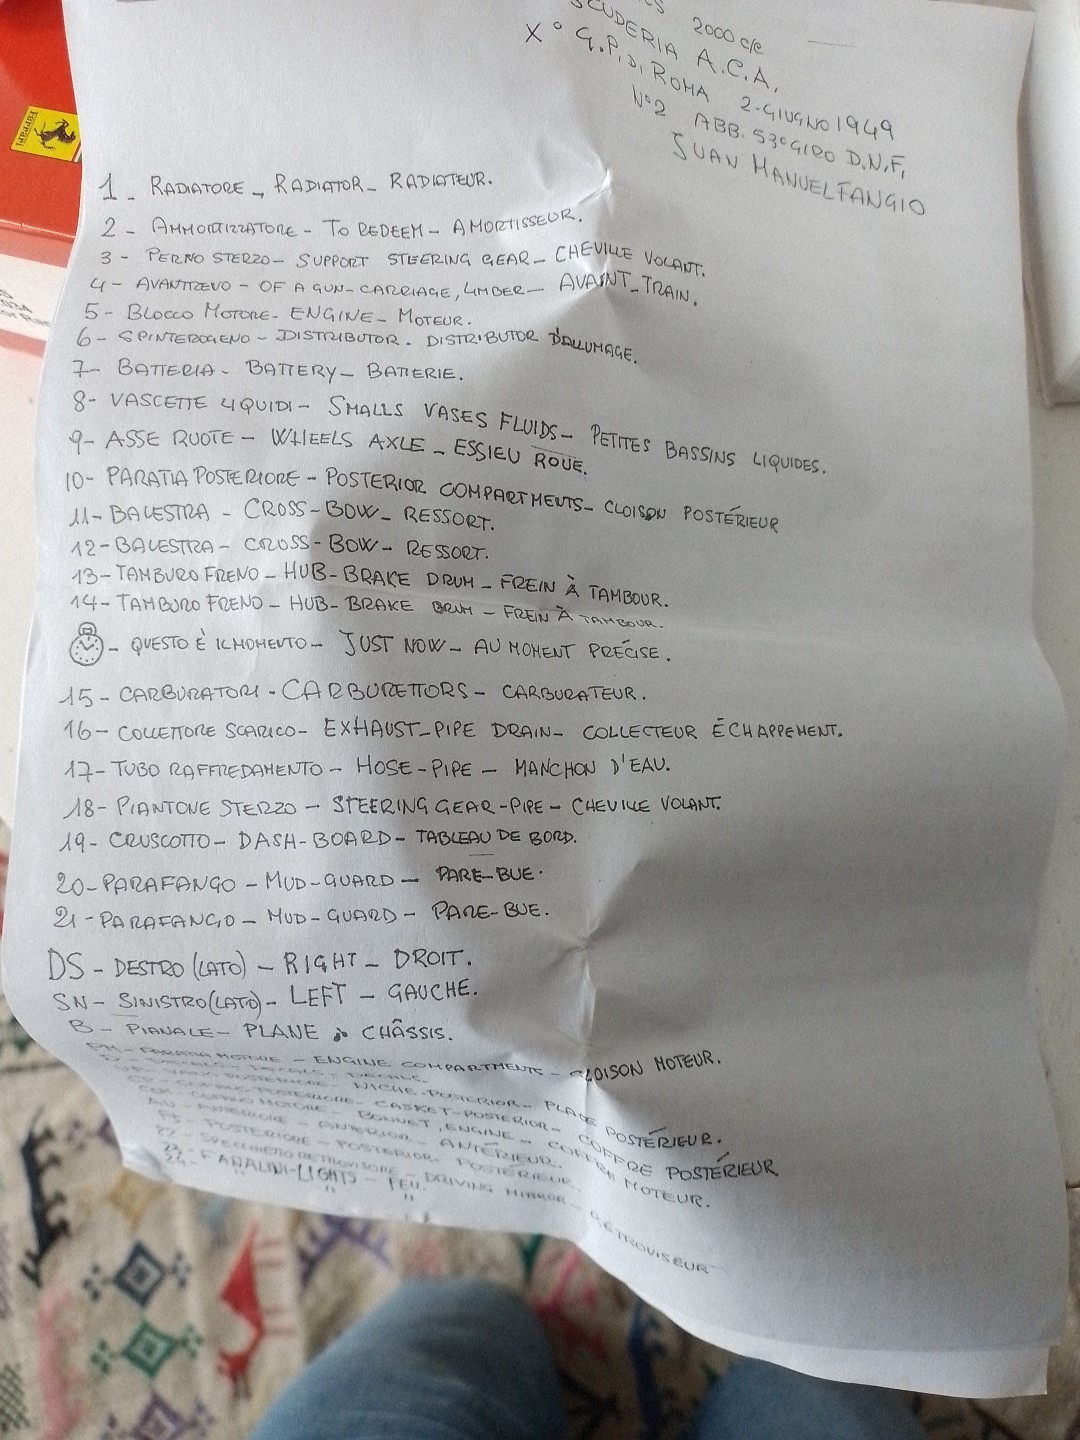 2000 c/c
SCUDERIA A.C.A.
X° G.P. DI ROMA 2-GIUGNO 1949
N°2 ABB. 53°GIRO D.N.F.
JUAN MANUEL FANGIO
Ferrari
1 - RADIATORE - RADIATOR - RADIATEUR.
2 - AMMORTIZZATORE - TO REDEEM - AMORTISSEUR.
3 - PERNO STERZO - SUPPORT STEERING GEAR - CHEVILLE VOLANT.
4 - AVANTREVO - OF A GUN-CARRIAGE, LIMBER - AVAINT-TRAIN.
5 - BLOCCO MOTORE - ENGINE - MOTEUR.
6 - SPINTEROGENO - DISTRIBUTOR. DISTRIBUTOR D'ALLUMAGE.
7 - BATTERIA - BATTERY - BATTERIE.
8 - VASCETTE LIQUIDI - SMALLS VASES FLUIDS - PETITES BASSINS LIQUIDES.
9 - ASSE RUOTE - WHEELS AXLE - ESSIEU ROUE.
10 - PARATIA POSTERIORE - POSTERIOR COMPARTMENTS - CLOISON POSTÉRIEUR
11 - BALESTRA - CROSS-BOW - RESSORT.
12 - BALESTRA - CROSS-BOW - RESSORT.
13 - TAMBURO FRENO - HUB-BRAKE DRUM - FREIN À TAMBOUR.
14 - TAMBURO FRENO - HUB-BRAKE DRUM - FREIN À TAMBOUR.
- QUESTO È IL MOMENTO - JUST NOW - AU MOMENT PRÉCISE.
15 - CARBURATORI - CARBURETTORS - CARBURATEUR.
16 - COLLETTORE SCARICO - EXHAUST-PIPE DRAIN - COLLECTEUR ÉCHAPPEMENT.
17 - TUBO RAFFREDAMENTO - HOSE-PIPE - MANCHON D'EAU.
18 - PIANTONE STERZO - STEERING GEAR-PIPE - CHEVILLE VOLANT.
19 - CRUSCOTTO - DASH-BOARD - TABLEAU DE BORD.
20 - PARAFANGO - MUD-GUARD - PARE-BUE.
21 - PARAFANGO - MUD-GUARD - PARE-BUE.
DS - DESTRO (LATO) - RIGHT - DROIT.
SN - SINISTRO (LATO) - LEFT - GAUCHE.
B - PIANALE - PLANE - CHÂSSIS.
PM - PARATIA MOTORE - ENGINE COMPARTMENTS - CLOISON MOTEUR.
D - DECALS - DECALS - DECALS.
POSTERIORE - NICHE-POSTERIOR - PLACE POSTÉRIEUR.
CP - COFFANO POSTERIORE - CASKET-POSTERIOR - COFFRE POSTÉRIEUR
COFANO MOTORE - BONNET, ENGINE - COFFRE MOTEUR.
AN - ANTERIORE - ANTERIOR - ANTÉRIEUR.
POSTERIORE - POSTERIOR - POSTÉRIEUR.
22 - SPECCHIETTO RETROVISORE - DRIVING MIRROR - RÉTROVISEUR
23 - FANALINI - LIGHTS - FEU.
24 - " " "